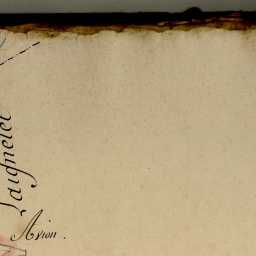 Laignelet
Avion.